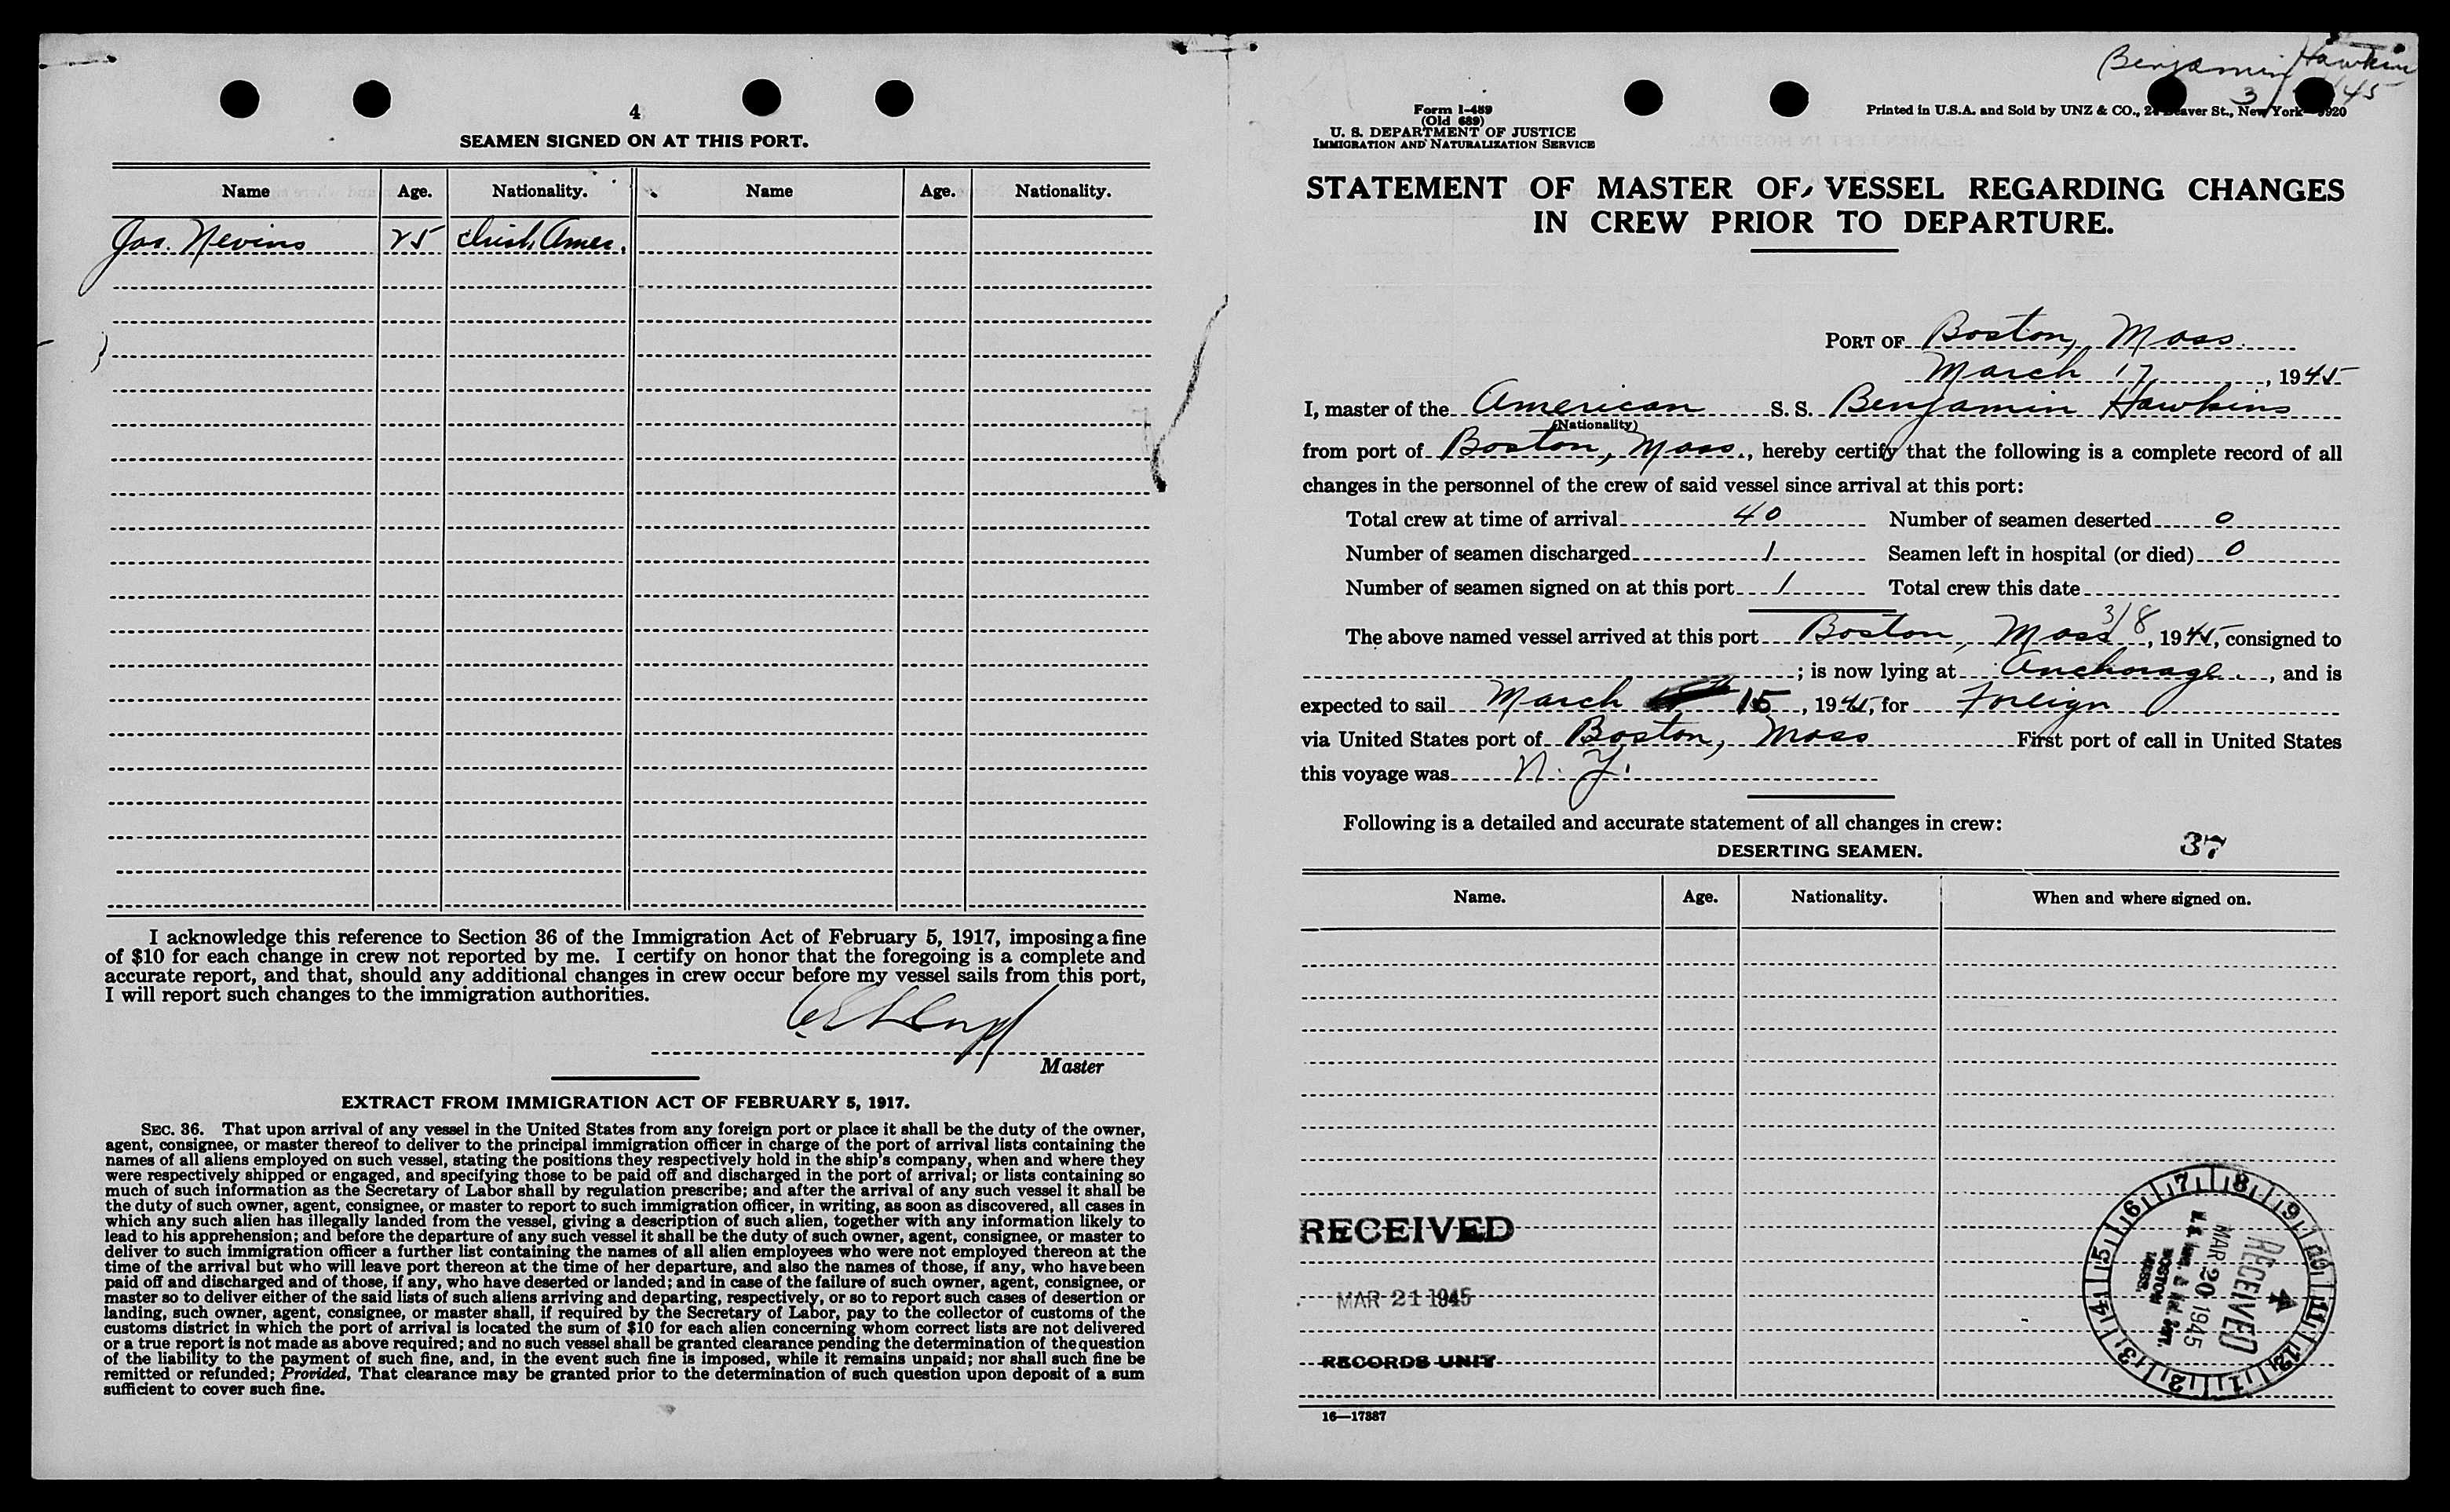 4
SEAMEN SIGNED ON AT THIS PORT.
Name Age. Nationality. Name Age. Nationality.
Jas. Nevins 25 Irish Amer.
I acknowledge this reference to Section 36 of the Immigration Act of February 5, 1917, imposing a fine
of $10 for each change in crew not reported by me. I certify on honor that the foregoing is a complete and
accurate report, and that, should any additional changes in crew occur before my vessel sails from this port,
I will report such changes to the immigration authorities.
Master
EXTRACT FROM IMMIGRATION ACT OF FEBRUARY 5, 1917.
SEC. 36. That upon arrival of any vessel in the United States from any foreign port or place it shall be the duty of the owner,
agent, consignee, or master thereof to deliver to the principal immigration officer in charge of the port of arrival lists containing the
names of all aliens employed on such vessel, stating the positions they respectively hold in the ship's company, when and where they
were respectively shipped or engaged, and specifying those to be paid off and discharged in the port of arrival; or lists containing so
much of such information as the Secretary of Labor shall by regulation prescribe; and after the arrival of any such vessel it shall be
the duty of such owner, agent, consignee, or master to report to such immigration officer, in writing, as soon as discovered, all cases in
which any such alien has illegally landed from the vessel, giving a description of such alien, together with any information likely to
lead to his apprehension; and before the departure of any such vessel it shall be the duty of such owner, agent, consignee, or master to
deliver to such immigration officer a further list containing the names of all alien employees who were not employed thereon at the
time of the arrival but who will leave port thereon at the time of her departure, and also the names of those, if any, who have been
paid off and discharged and of those, if any, who have deserted or landed; and in case of the failure of such owner, agent, consignee, or
master so to deliver either of the said lists of such aliens arriving and departing, respectively, or so to report such cases of desertion or
landing, such owner, agent, consignee, or master shall, if required by the Secretary of Labor, pay to the collector of customs of the
customs district in which the port of arrival is located the sum of $10 for each alien concerning whom correct lists are not delivered
or a true report is not made as above required; and no such vessel shall be granted clearance pending the determination of the question
of the liability to the payment of such fine, and, in the event such fine is imposed, while it remains unpaid; nor shall such fine be
remitted or refunded; Provided, That clearance may be granted prior to the determination of such question upon deposit of a sum
sufficient to cover such fine.
Benjamin Hawkins
3/ /45
Form I-489
(Old 689)
U. S. DEPARTMENT OF JUSTICE
IMMIGRATION AND NATURALIZATION SERVICE
Printed in U.S.A. and Sold by UNZ & CO., St., New York
STATEMENT OF MASTER OF VESSEL REGARDING CHANGES
IN CREW PRIOR TO DEPARTURE.
PORT OF Boston, Mass.
March 17, 1945
I, master of the American S. S. Benjamin Hawkins
(Nationality)
from port of Boston, Mass., hereby certify that the following is a complete record of all
changes in the personnel of the crew of said vessel since arrival at this port:
Total crew at time of arrival 40 Number of seamen deserted 0
Number of seamen discharged 1 Seamen left in hospital (or died) 0
Number of seamen signed on at this port 1 Total crew this date
The above named vessel arrived at this port Boston, Mass 3/8, 1945, consigned to
; is now lying at Anchorage, and is
expected to sail March 15, 1945, for Foreign
via United States port of Boston, Mass First port of call in United States
this voyage was N. Y.
Following is a detailed and accurate statement of all changes in crew:
37
DESERTING SEAMEN.
Name. Age. Nationality. When and where signed on.
RECEIVED
MAR 21 1945
RECORDS UNIT
7 8 9 10 11 12 1 2 3 4 5 6
RECEIVED
MAR 20 1945
BOSTON
MASS.
16—17387